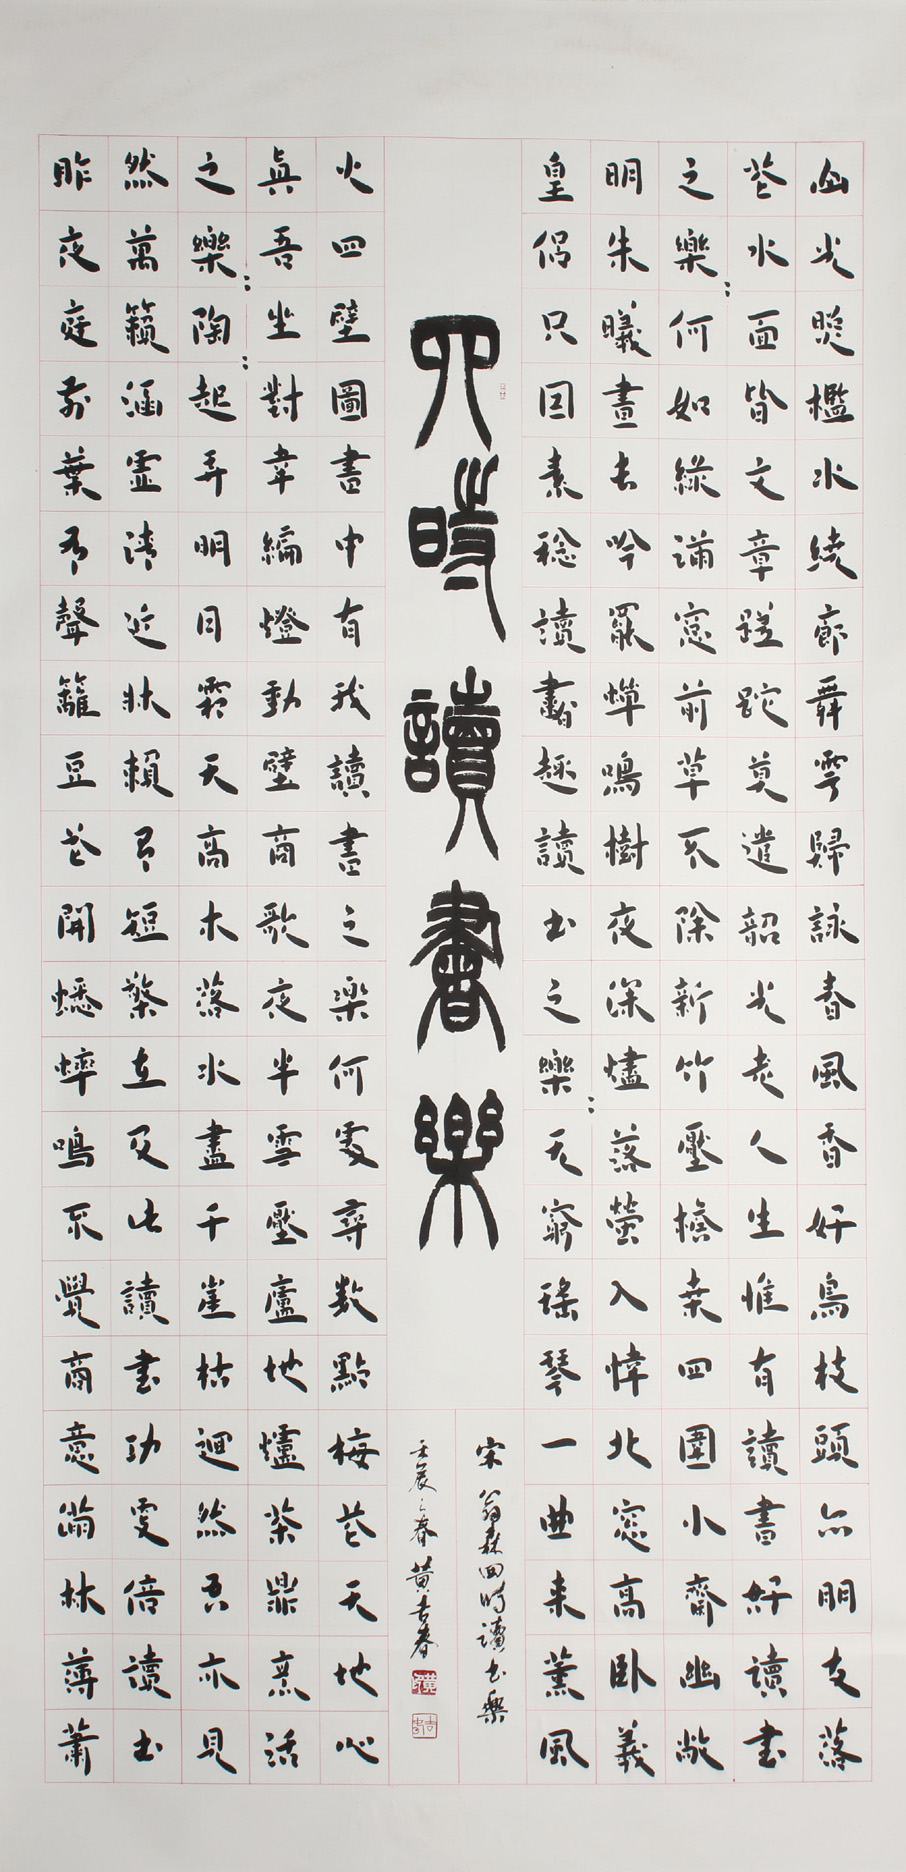 四時讀書樂
山光照檻水繞廊舞雩歸詠春風香好鳥枝頭亦朋友落
花水面皆文章蹉跎莫遣韶光老人生惟有讀書好讀書
之樂：何如綠滿窗前草不除新竹壓檐桑四圍小齋幽敞
明朱曦晝長吟罷蟬鳴樹夜深燼落螢入幃北窗高臥羲
皇侶只因素稔讀書趣讀书之樂：无窮瑤琴一曲来薰風
昨夜庭前葉有聲籬豆花開蟋蟀鳴不覺商意滿林薄蕭
然萬籟涵虛清近床賴有短檠在及此讀書功更倍讀书
之樂：陶：起弄明月霜天高木落水盡千崖枯迴然吾亦見
真吾坐對韋編燈動壁商歌夜半雪壓廬地爐茶鼎烹活
火四壁圖書中有我讀書之樂何處尋數點梅花天地心
宋翁森四時讀书樂
壬辰之春黃吉春